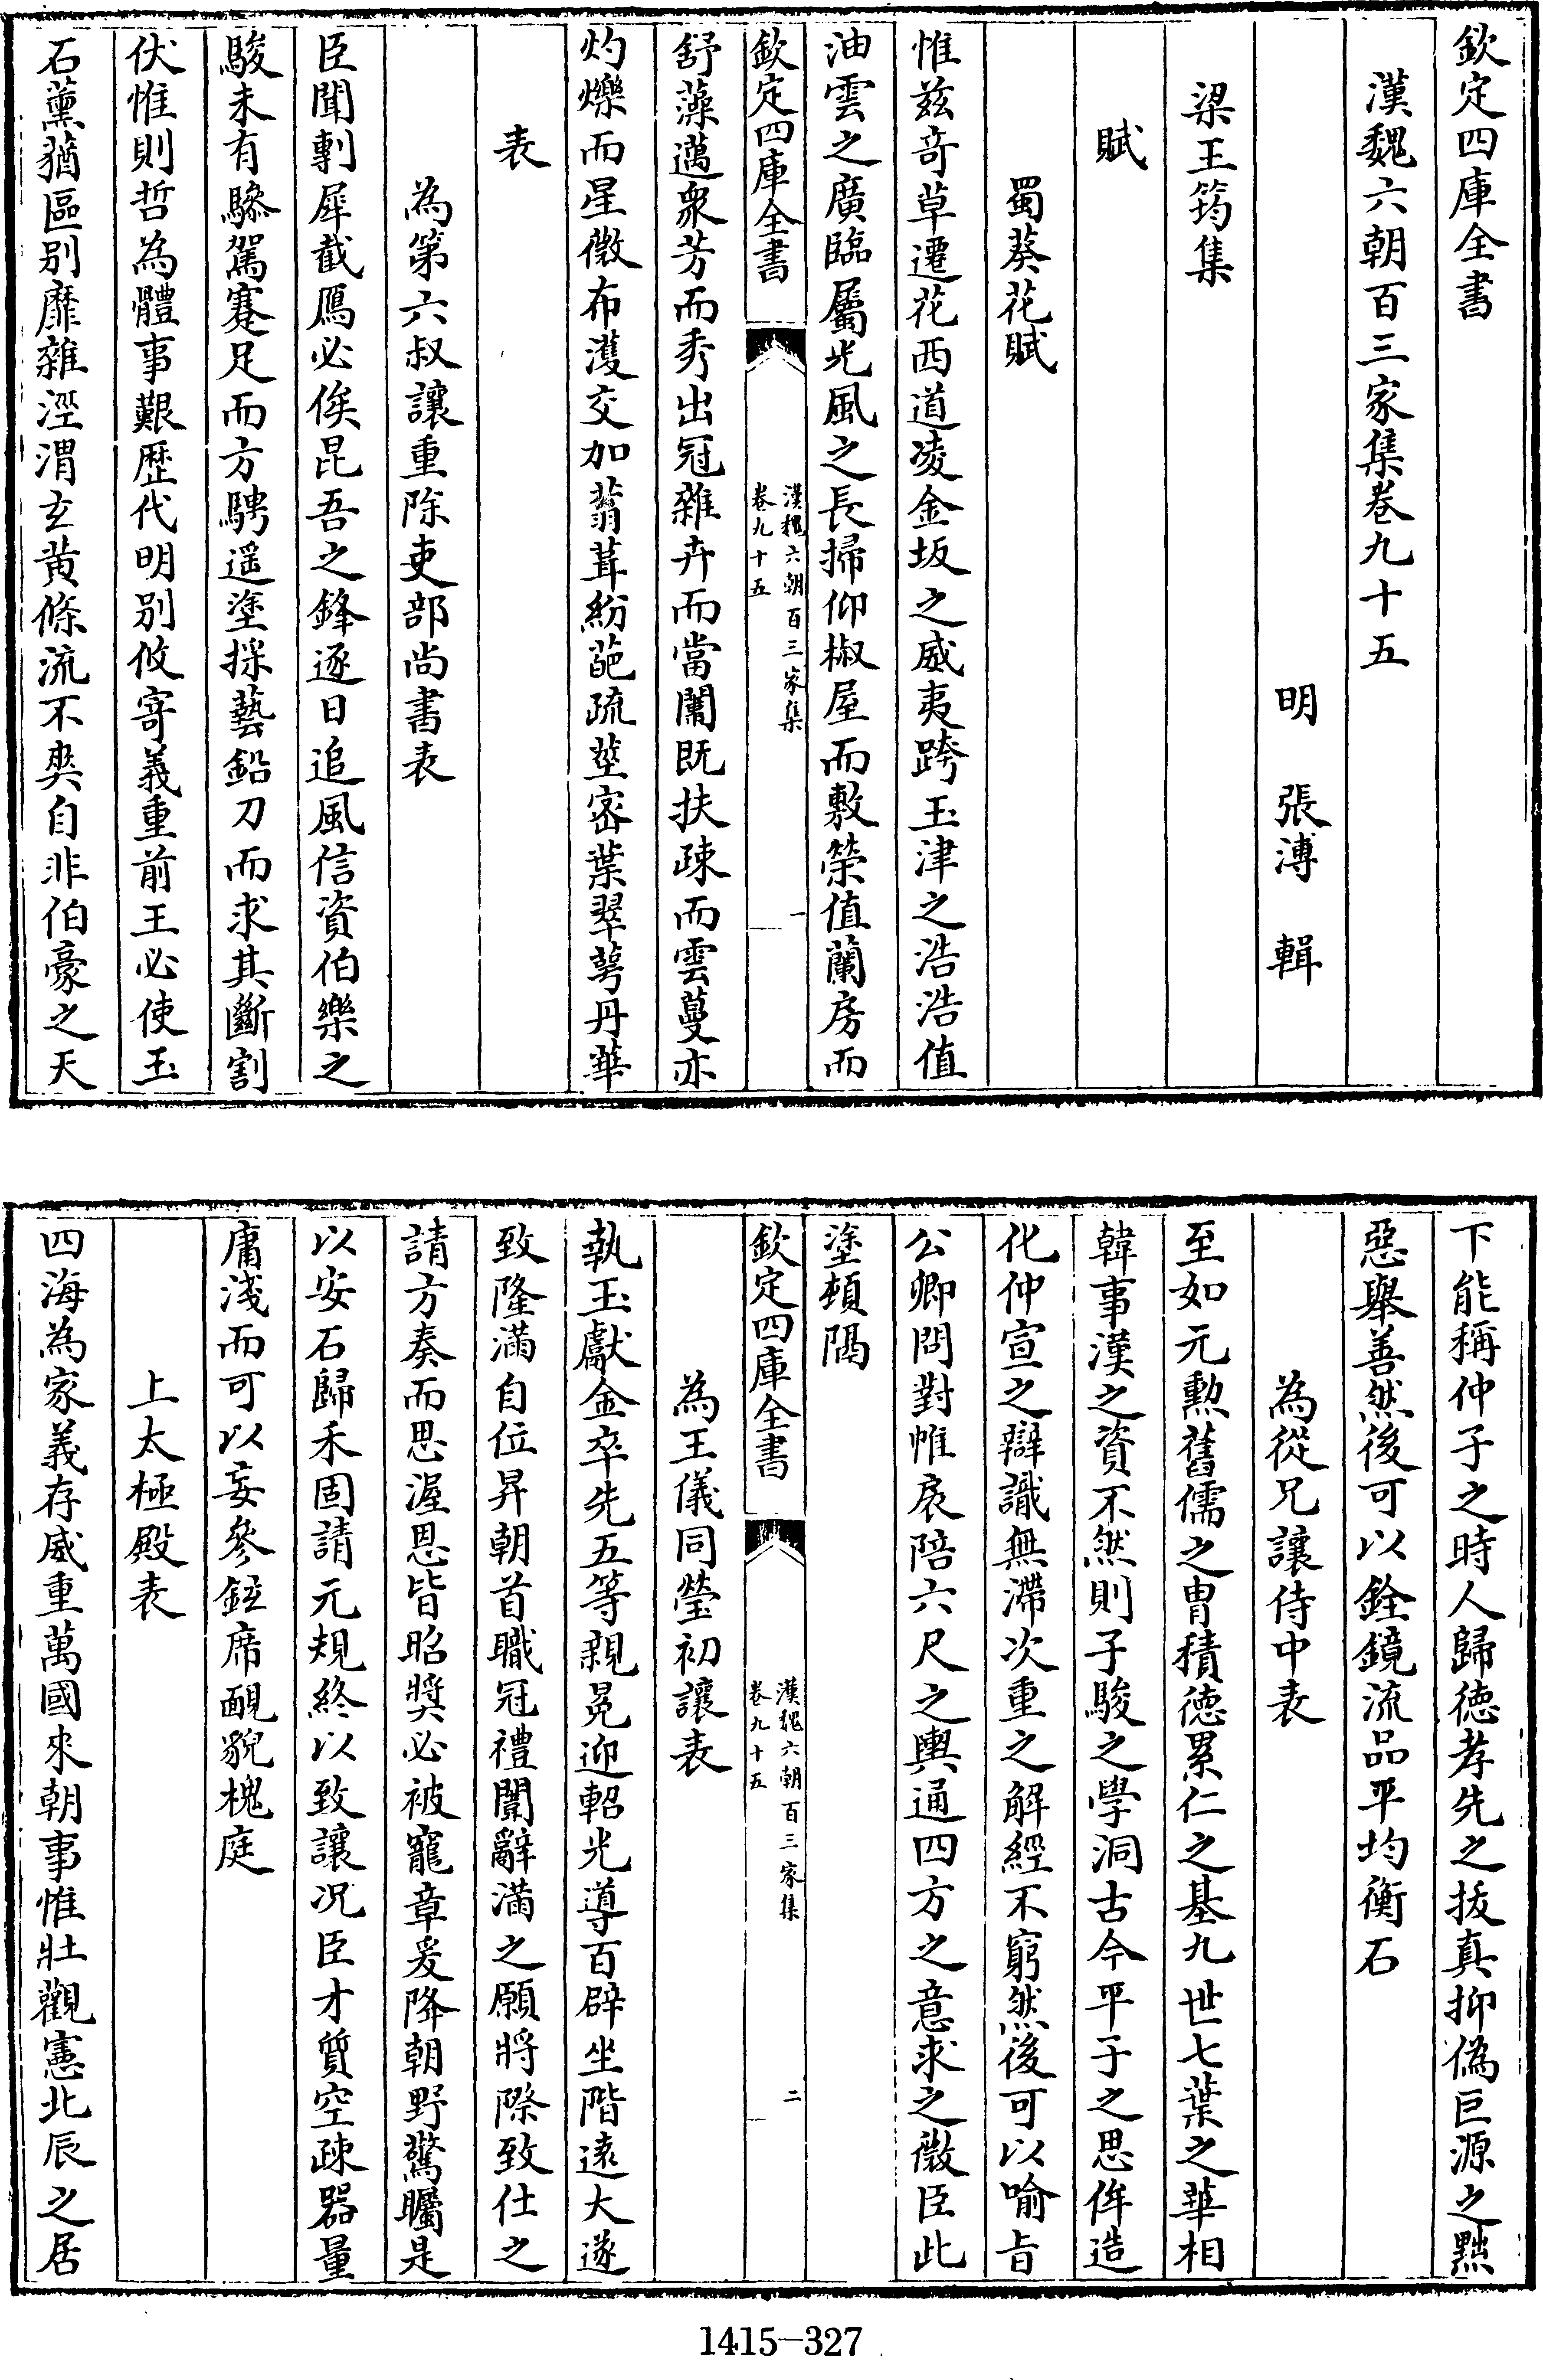 欽定四庫全書
漢魏六朝百三家集卷九十五
明 張溥 輯
梁王筠集
賦
蜀葵花賦
惟兹奇草遷花西道凌金坂之威夷跨玉津之浩浩值
油雲之廣臨屬光風之長掃仰椒屋而敷榮值蘭房而
欽定四庫全書
漢魏六朝百三家集
卷九十五
一
舒藻邁衆芳而秀出冠雜卉而當闈既扶疎而雲蔓亦
灼爍而星微布濩交加蓊茸紛葩疏莖密葉翠萼丹華
表
為第六叔讓重除吏部尚書表
臣聞剸犀截鴈必俟昆吾之鋒逐日追風信資伯樂之
駿未有驂駕蹇足而方騁遥塗採藝鉛刀而求其斷割
伏惟則哲為體事艱歴代明别攸寄義重前王必使玉
石薰蕕區别靡雜涇渭玄黄條流不爽自非伯豪之天
下能稱仲子之時人歸徳孝先之拔真抑偽巨源之黜
惡舉善然後可以銓鏡流品平均衡石
為從兄讓侍中表
至如元勲舊儒之胄積徳累仁之基九世七葉之華相
韓事漢之資不然則子駿之學洞古今平子之思侔造
化仲宣之辯識無滯次重之解經不窮然後可以喻旨
公卿問對帷扆陪六尺之輿通四方之意求之微臣此
塗頓隔
欽定四庫全書
漢魏六朝百三家集
卷九十五
二
為王儀同瑩初讓表
執玉獻金卒先五等親冕迎軺光導百辟坐階遠大遂
致隆滿自位昇朝首職冠禮闈辭滿之願將際致仕之
請方奏而思渥恩皆昭奬必被寵章爰降朝野驚矚是
以安石歸禾固請元規終以致讓况臣才質空疎器量
庸淺而可以妄參鉉席靦貌槐庭
上太極殿表
四海為家義存威重萬國來朝事惟壯觀憲北辰之居
1415-327